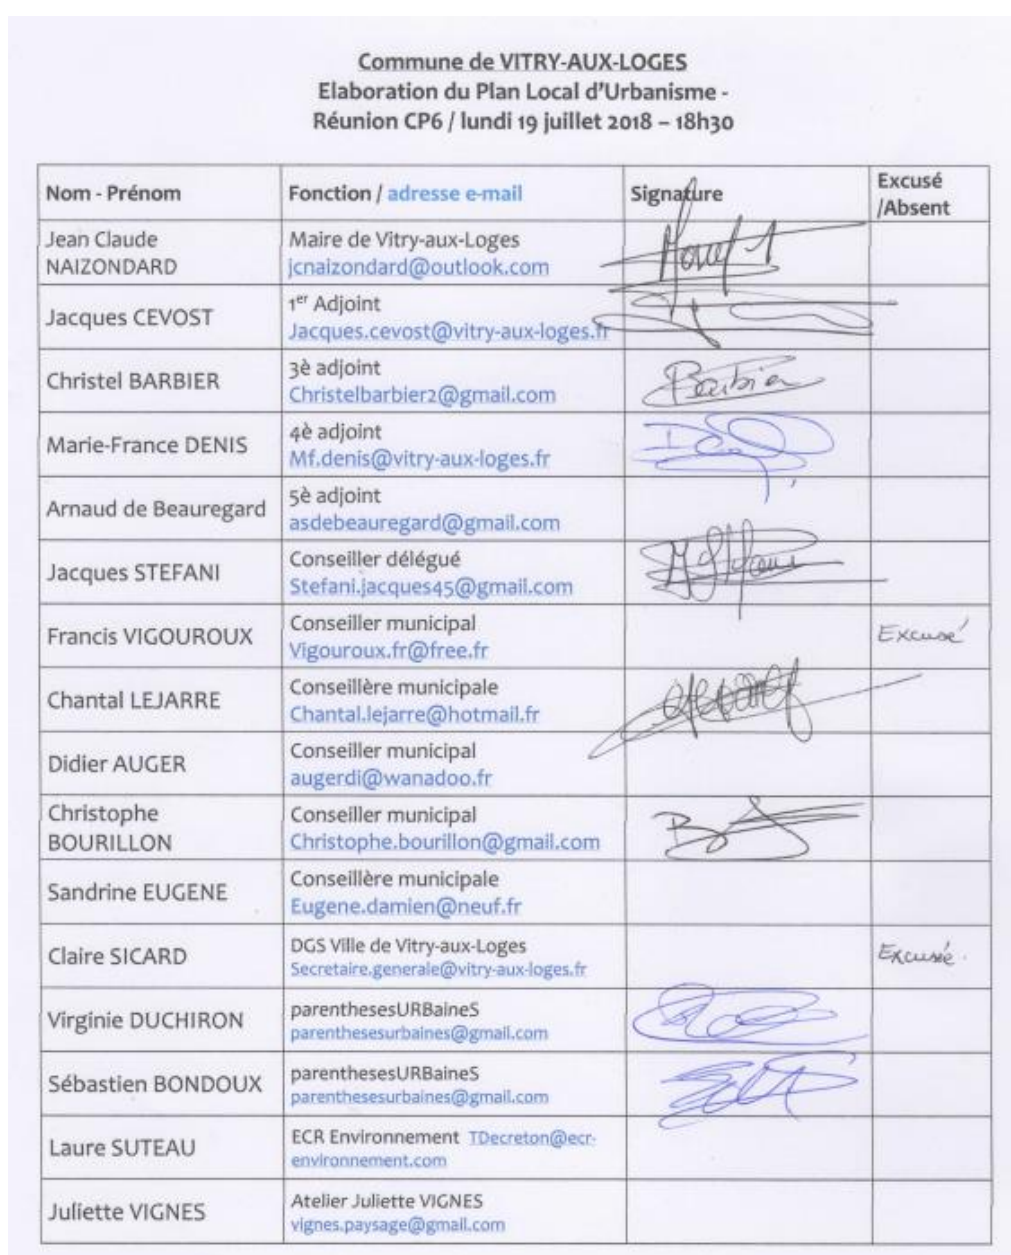 Commune de VITRY-AUX-LOGES
Elaboration du Plan Local d'Urbanisme -
Réunion CP6 / lundi 19 juillet 2018 – 18h30
Nom - Prénom Fonction / adresse e-mail Signature Excusé
/Absent
Jean Claude
NAIZONDARD
Maire de Vitry-aux-Loges
jcnaizondard@outlook.com
Jacques CEVOST
1er Adjoint
Jacques.cevost@vitry-aux-loges.fr
Christel BARBIER
3è adjoint
Christelbarbier2@gmail.com
Barbier
Marie-France DENIS
4è adjoint
Mf.denis@vitry-aux-loges.fr
Arnaud de Beauregard
5è adjoint
asdebeauregard@gmail.com
Jacques STEFANI
Conseiller délégué
Stefani.jacques45@gmail.com
Francis VIGOUROUX
Conseiller municipal
Vigouroux.fr@free.fr
Excusé
Chantal LEJARRE
Conseillère municipale
Chantal.lejarre@hotmail.fr
Didier AUGER
Conseiller municipal
augerdi@wanadoo.fr
Christophe
BOURILLON
Conseiller municipal
Christophe.bourillon@gmail.com
Sandrine EUGENE
Conseillère municipale
Eugene.damien@neuf.fr
Claire SICARD
DGS Ville de Vitry-aux-Loges
Secretaire.generale@vitry-aux-loges.fr
Excusée.
Virginie DUCHIRON
parenthesesURBaineS
parenthesesurbaines@gmail.com
Sébastien BONDOUX
parenthesesURBaineS
parenthesesurbaines@gmail.com
Laure SUTEAU
ECR Environnement TDecreton@ecr-
environnement.com
Juliette VIGNES
Atelier Juliette VIGNES
vignes.paysage@gmail.com